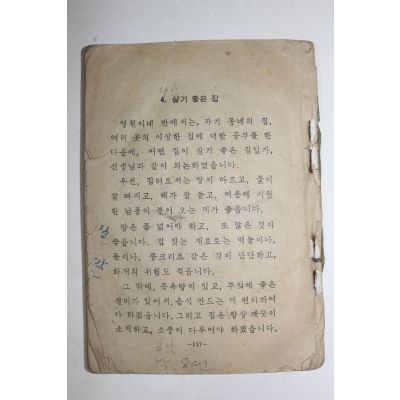 4. 살기 좋은 집
영철이네 반에서는, 자기 동네의 집,
여러 곳의 이상한 집에 대한 공부를 한
다음에, 어떤 집이 살기 좋은 집일가,
선생님과 같이 의논하였읍니다.
우선, 집터로서는 땅이 마르고, 물이
잘 빠지고, 해가 잘 들고, 여름에 시원
한 남풍이 불어 오는 데가 좋습니다.
방은 좀 넓어야 하고, 또 많은 것이
좋습니다. 집 짓는 재료로는 벽돌이나,
돌이나, 콩크리트 같은 것이 단단하고,
화재의 위험도 적습니다.
그 밖에, 목욕탕이 있고, 부엌에 좋은
설비가 있어서, 음식 만드는 데 편리하여
야 하겠습니다. 그리고 집은 항상 깨끗이
소제하고, 소중히 다루어야 하겠습니다.
—137—